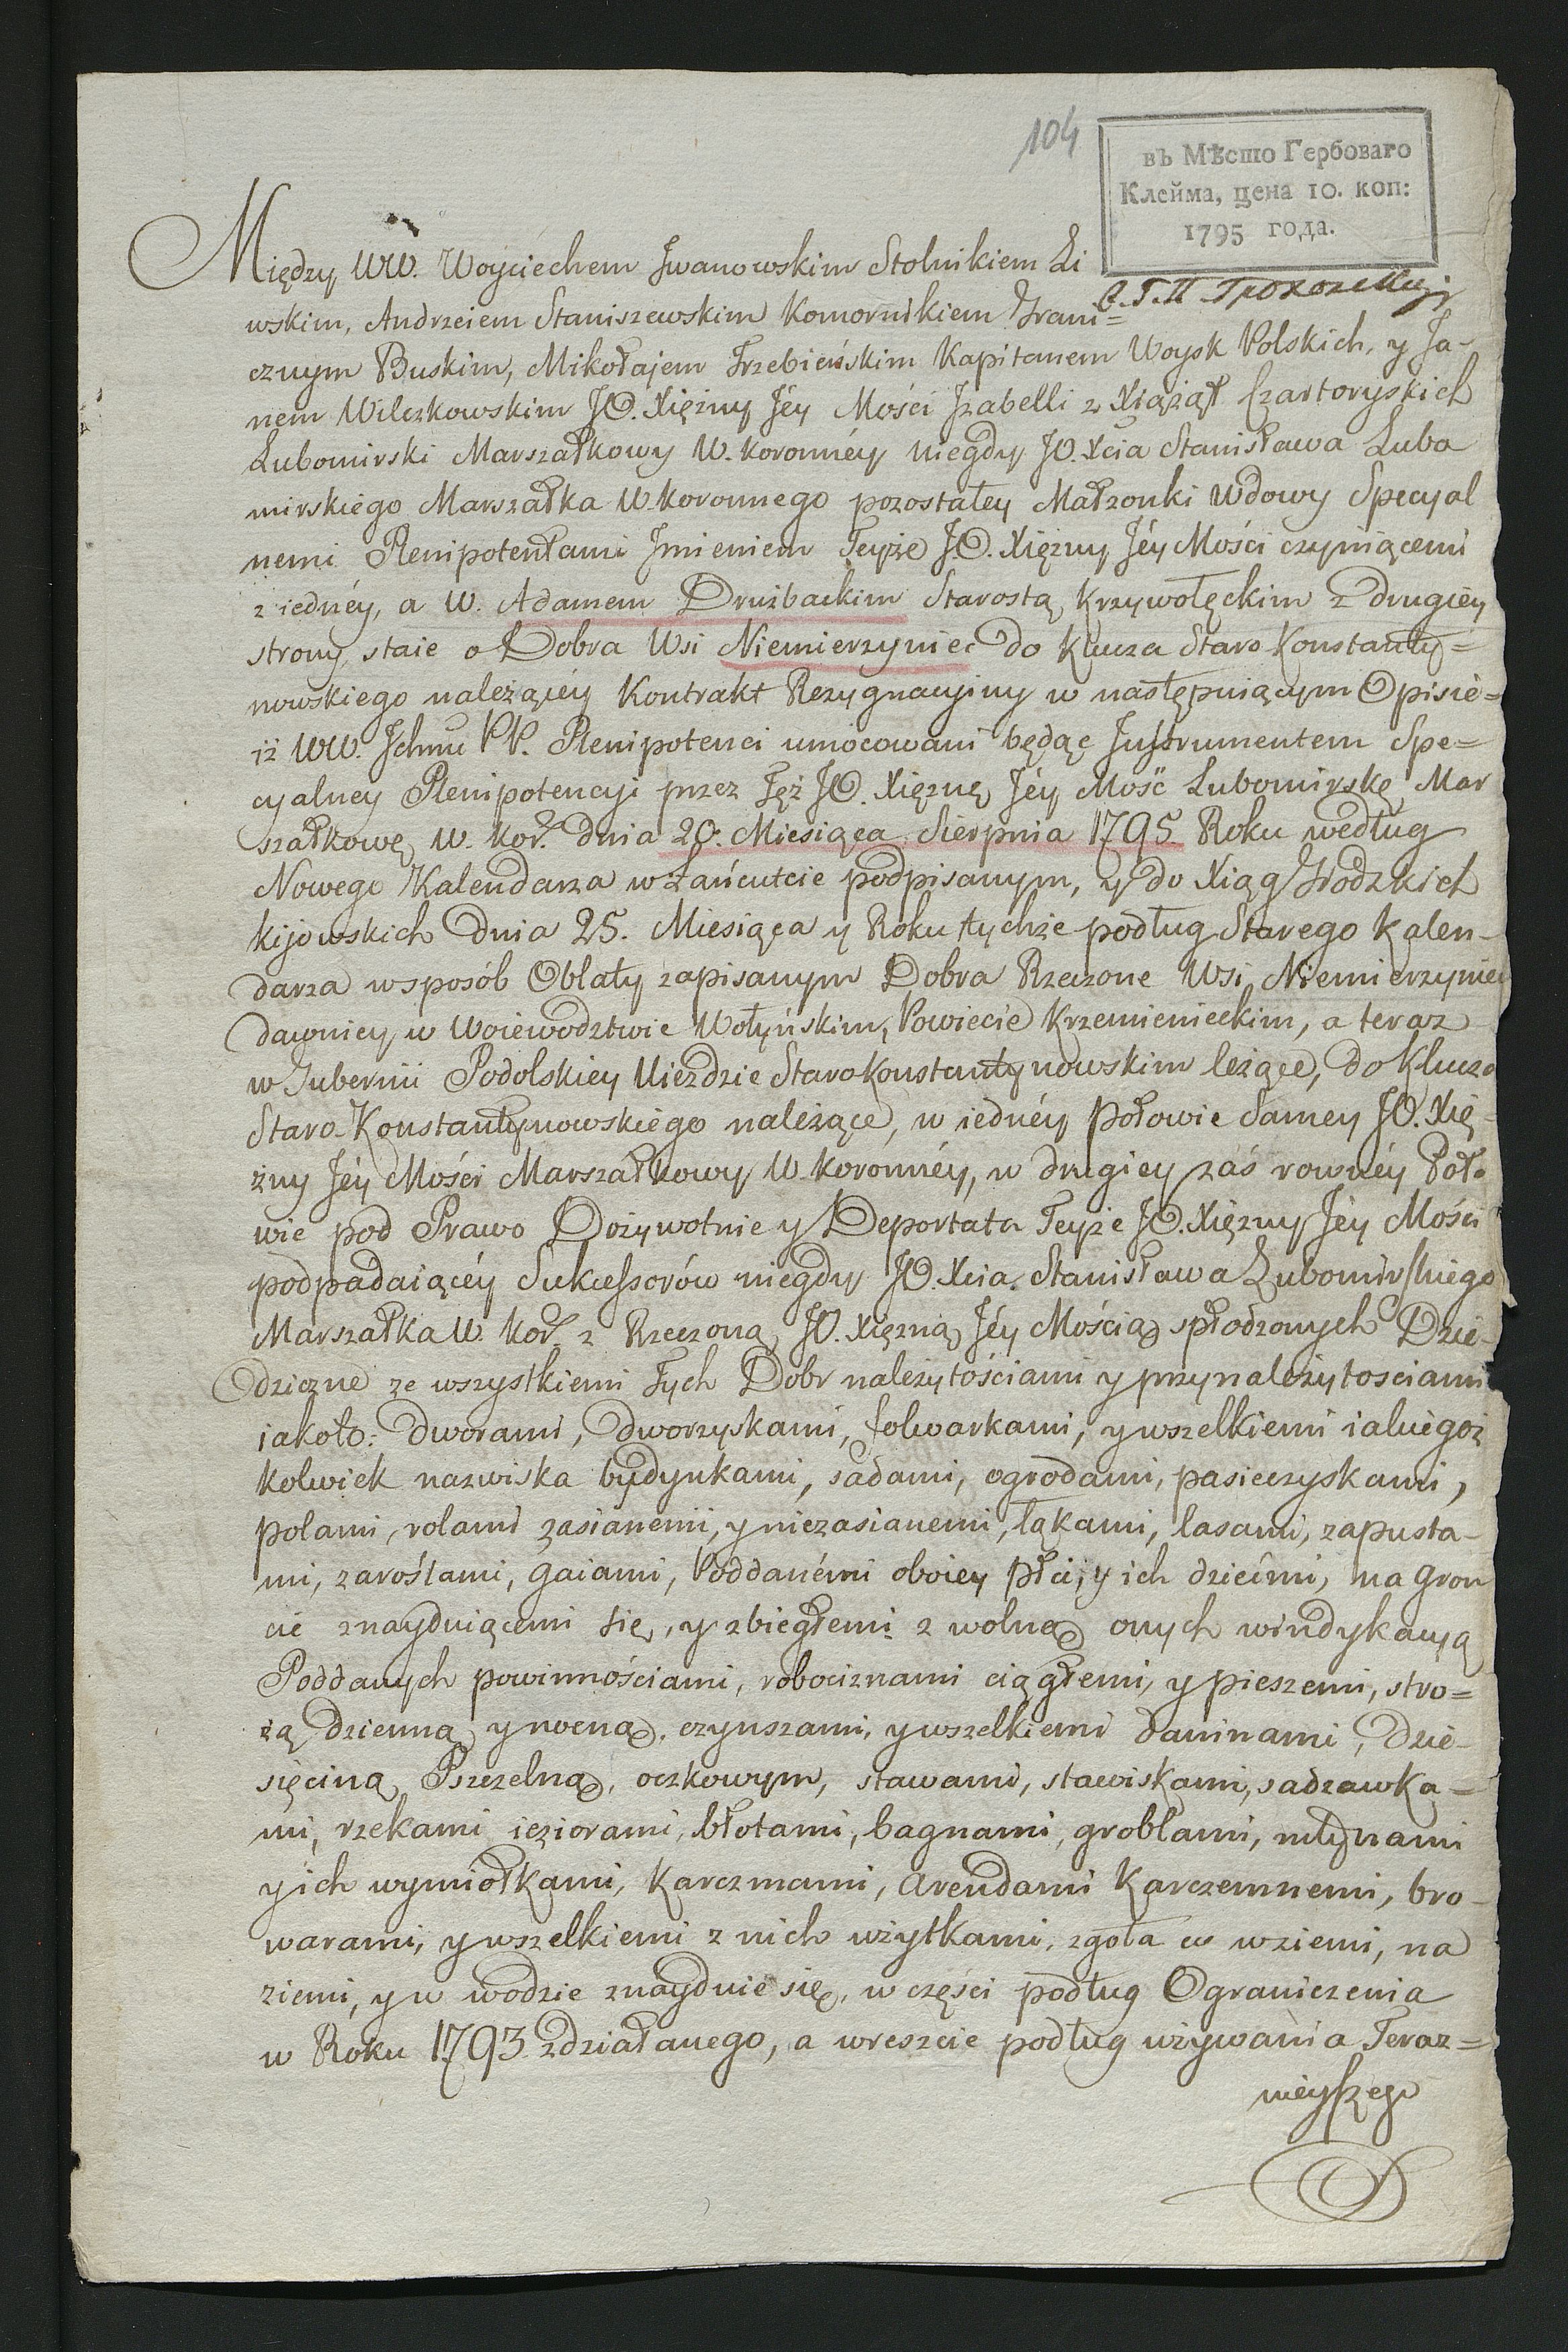 104
въ Мѣсто Гербоваго
Клейма, цена 10. коп:
1795 года.
Między WW. Woyciechem Jwanowskim Stolnikiem Li
wskim, Andrzeiem Staniszewskim Komornikiem Grani=
cznym Buskim, Mikołajem Trzebieńskim Kapitanem Woysk Polskich, y Ja-
nem Wilczkowskim JO. Xiężny Jéy Mości Jzabelli z Xiążąt Czartoryskich
Lubomirski Marszałkowy W. koronnéy niegdy JO. Xcia Stanisława Lubo
mirskiego Marszałka W. koronnego pozostałey Małzonki Wdowy Specyal
nemi Plenipotentami Jmieniem Teyże JO. Xiężny Jéy Mości czyniącemi
z iednéy, a W. Adamem Drużbackim Starostą Krzywołęckim z drugiéy
strony staie o Dobra Wsi Niemierzyniec do Klucza Staro Konstanty=
nowskiego należącéy Kontrakt Rezygnacyiny w następuiącym Opisie=
iż WW. Jchmć PP. Plenipotenci umocowani będąc Justrumentem Spe=
cyalney Plenipotencyi przez Tęż JO. Xiężnę Jéy Mość Lubomirskę Mar
szałkowę W. kor. dnia 20. Miesiąca Sierpnia 1795. Roku według
Nowego Kalendarza w Łańcutcie podpisanym, y do Xiąg Grodzkich
kijowskich dnia 25. Miesiąca y Roku tychże podług Starego Kalen-
darza w sposób Oblaty zapisanym Dobra Rzeczone Wsi Niemierzyniec
dawniey w Woiewodztwie Wołyńskim, Powiecie Krzemienieckim, a teraz
w Gubernii Podolskiey Uiezdzie Starokonstantynowskim leżące, do Klucza
Staro-Konstantynowskiego należące, w iednéy połowie Samey JO. Xię-
żny Jéy Mości Marszałkowy W. koronnéy, w drugiey zaś rownéy Poło
wie pod Prawo Dożywotnie y Deportata Teyże JO. Xiężny Jéy Mości
podpadaiącéy Sukcessorów niegdy JO. Xcia. Stanisława Lubomirskiego
Marszałka W. kor. z Rzeczoną JO. Xiężną Jéy Mością spłodzonych Dzie-
dziczne ze wszystkiemi Tych Dobr należytościami y przynależytosciami
iakoto: dworami, dworzyskami, folwarkami, y wszelkiemi iakiegoż
kolwiek nazwiska budynkami, sadami, ogrodami, pasieczyskami,
polami, rolami zasianemi, y niezasianemi, łąkami, lasami, zapusta-
mi, zaroślami, gaiami, Poddanémi oboiey płci, y ich dziećmi, na gron
cie znayduiącemi się, y zbiegłemi z wolną onych windykacyą
Poddanych powinnościami, robociznami ciągłemi, y pieszemi, stro=
żą dzienną y nocną, czynszami, y wszelkiemi daninami, Dzie-
sięciną Pszczelną, oczkowym, stawami, stawiskami, sadzawka=
mi, rzekami ieziorami, błotami, bagnami, groblami, młynami
y ich wymiołkami, karczmami, arendami karczemnemi, bro-
warami, y wszelkiemi z nich użytkami, zgoła co w ziemi, na
ziemi, y w wodzie znayduie się, w części podług Ograniczenia
w Roku 1793 zdziałanego, a wreszcie podług używania Teraz=
nieyszego